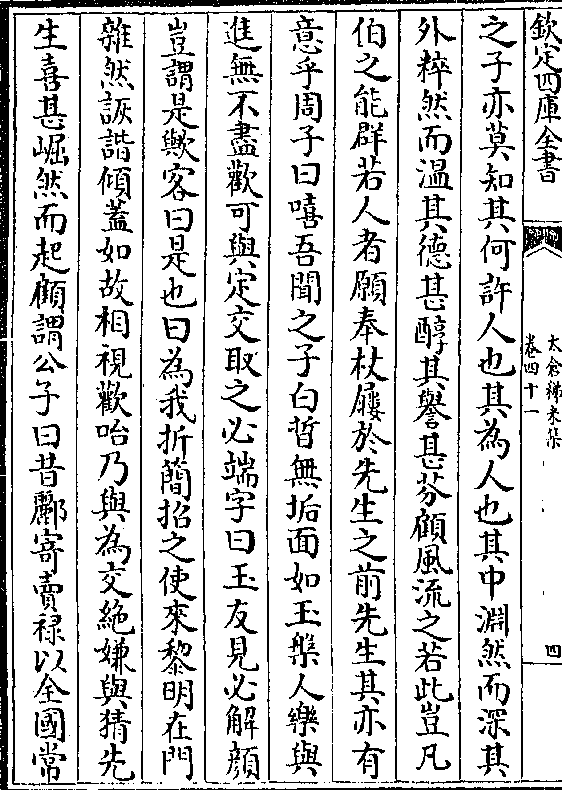 欽定四庫全書
太倉稊米集
卷四十一
四
之子亦莫知其何許人也其為人也其中淵然而深其
外粹然而溫其德甚醇其譽甚芬顧風流之若此豈凡
伯之能群若人者願奉杖屨於先生之前先生其亦有
意乎周子曰嘻吾聞之子白晳無垢面如玉槃人樂與
進無不盡歡可與定交取之必端字曰玉友見必解顔
豈謂是歟客曰是也曰為我折簡招之使來黎明在門
雜然詼諧傾蓋如故相視歡咍乃與為交絶嫌與猜先
生喜甚崛然而起顧謂公子曰昔酈寄賣禄以全國常